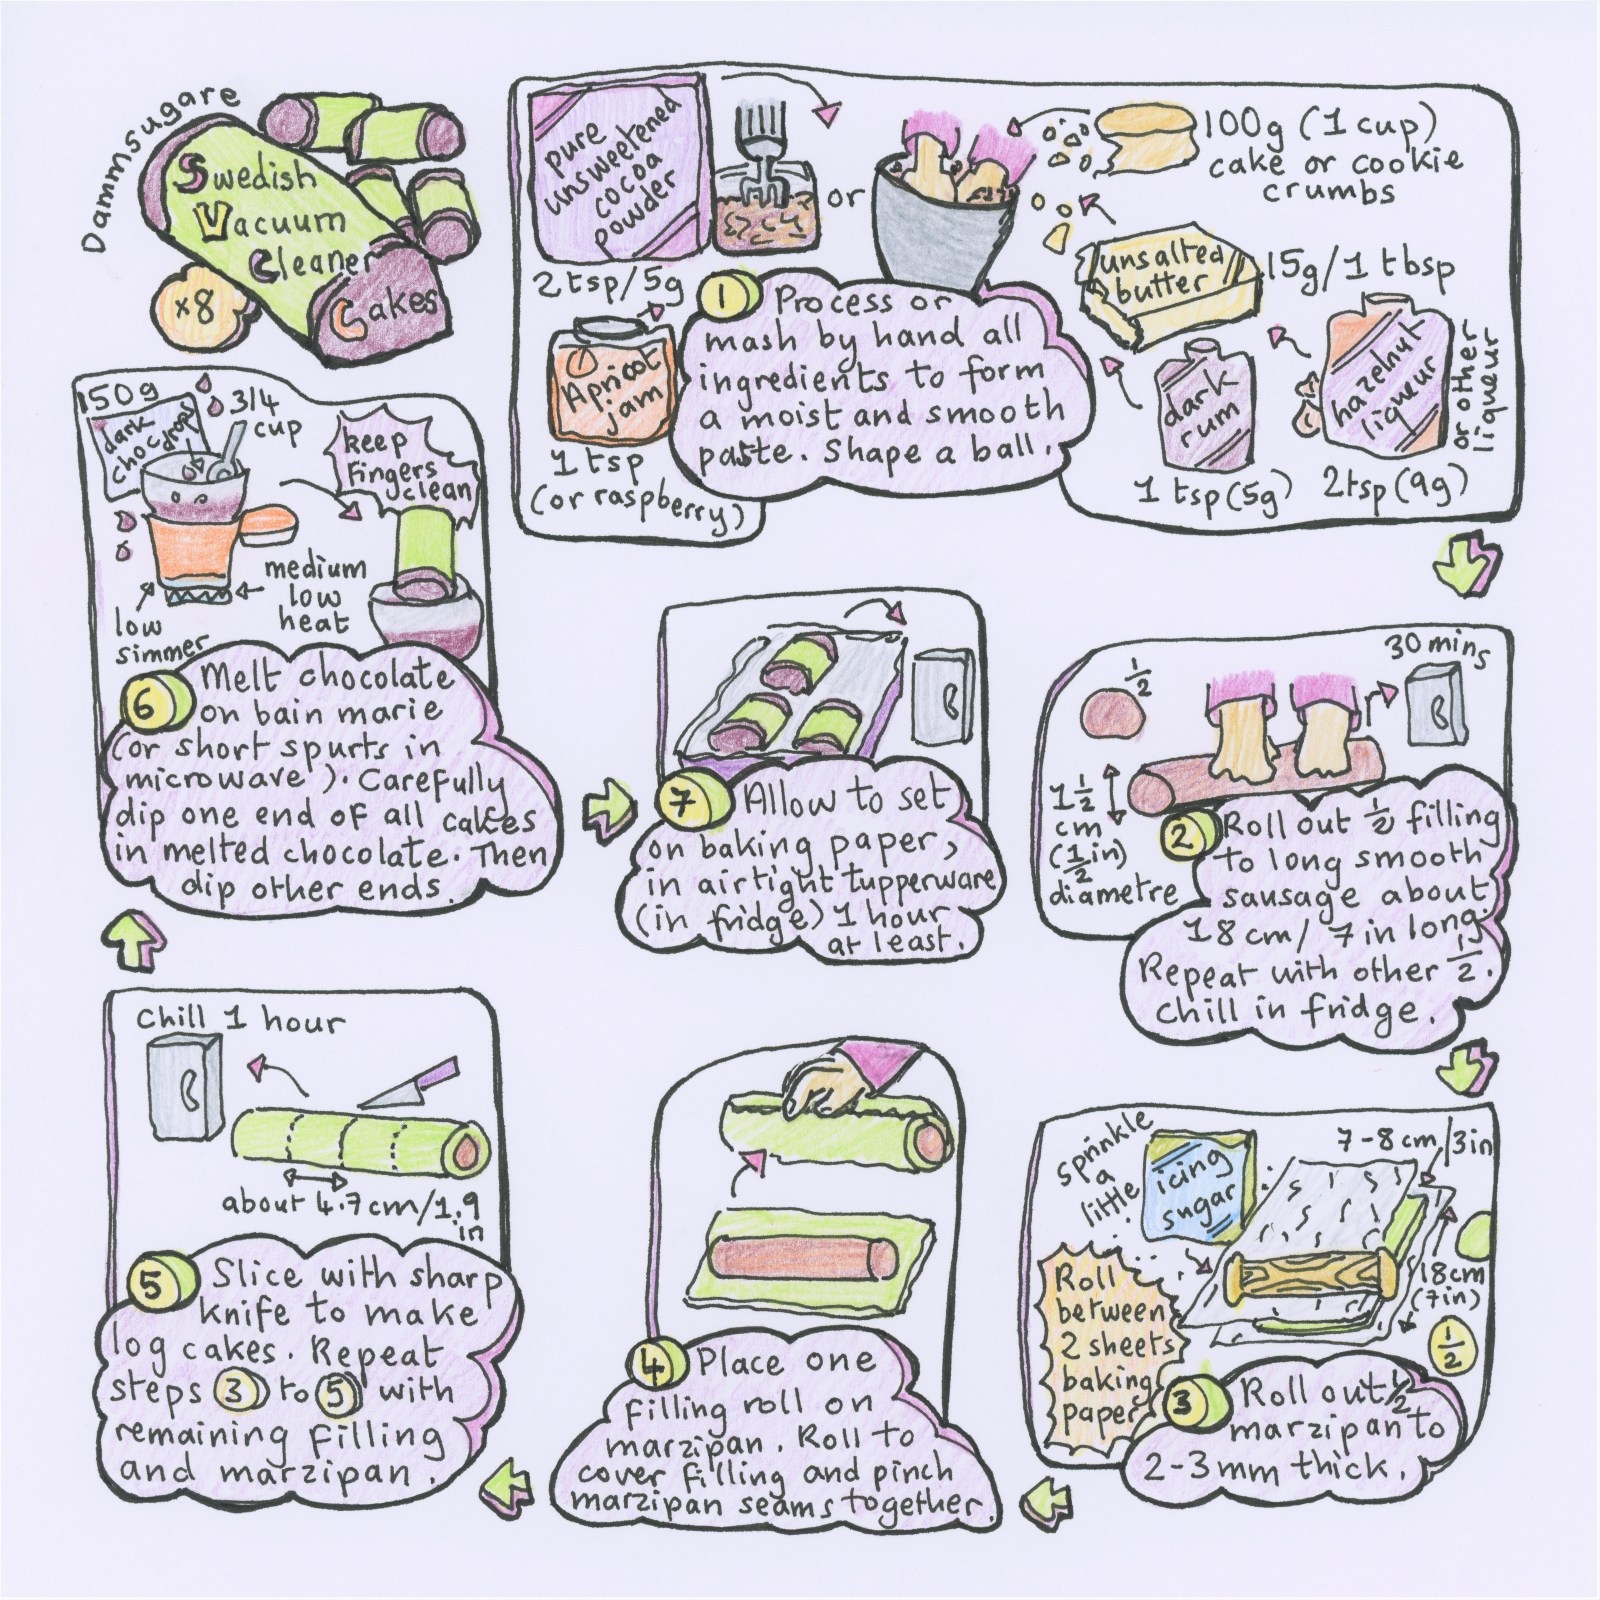 Dammsugare
Swedish
Vacuum
Cleaner
Cakes
x8
pure
unsweetened
cocoa
powder
2 tsp/5g
or
100g (1 cup)
cake or cookie
crumbs
unsalted
butter
15g/1 tbsp
Apricot
jam
1 tsp
(or raspberry)
dark
rum
1 tsp (5g)
hazelnut
liqueur
or other
liqueur
2tsp (9g)
1 Process or
mash by hand all
ingredients to form
a moist and smooth
paste. Shape a ball.
1/2
30 mins
1 1/2
cm
(1/2 in)
diametre
2 Roll out 1/2 filling
to long smooth
sausage about
18 cm/ 7 in long.
Repeat with other 1/2.
Chill in fridge.
sprinkle
a
little
icing
sugar
7-8 cm/3in
18cm
(7in)
1/2
Roll
between
2 sheets
baking
paper
3 Roll out 1/2
marzipan to
2-3mm thick.
4 Place one
filling roll on
marzipan. Roll to
cover filling and pinch
marzipan seams together.
Chill 1 hour
about 4.7cm/1.9
in
5 Slice with sharp
knife to make
log cakes. Repeat
steps 3 to 5 with
remaining filling
and marzipan.
150g
dark
choc drops
3/4
cup
keep
fingers
clean
medium
low
heat
low
simmer
6 Melt chocolate
on bain marie
(or short spurts in
microwave). Carefully
dip one end of all cakes
in melted chocolate. Then
dip other ends.
7 Allow to set
on baking paper,
in airtight tupperware
(in fridge) 1 hour
at least.